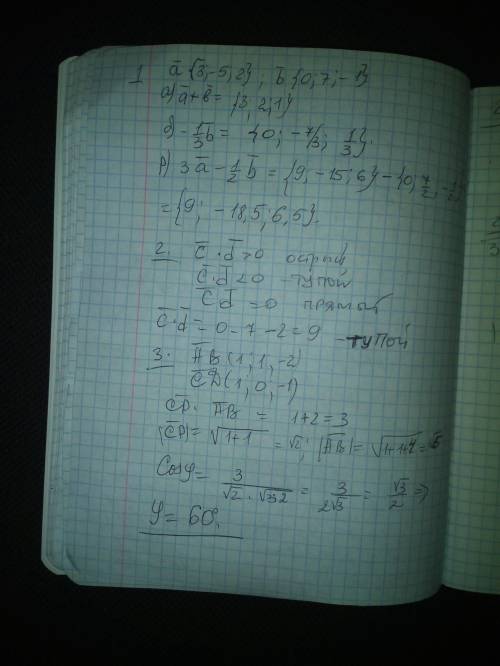 1 a̅ {3; -5; 2}, b̅ {0; 7; -1}
а) a̅+b̅= {3, 2, 1}
б) -1/3 b̅ = {0; -7/3; 1/3}.
в) 3a̅ - 1/2 b̅ = {9, -15; 6} - {0; 7/2, -1/2}
= {9; -18,5; 6,5}.
2. c̅ · d̅ > 0 острый
c̅ · d̅ < 0 - тупой
c̅ d̅ = 0 прямый
c̅ · d̅ = 0 - 7 - 2 = 9 - тупой
3. A̅B̅ (1; 1, -2)
C̅D̅ (1, 0, -1)
C̅D̅ · A̅B̅ = 1+2 = 3
|C̅D̅| = √1+1 = √2; |A̅B̅| = √1+1+4 =
Cosφ = 3 / = 3/2√3 = √3/2 ⇒
φ = 60°.